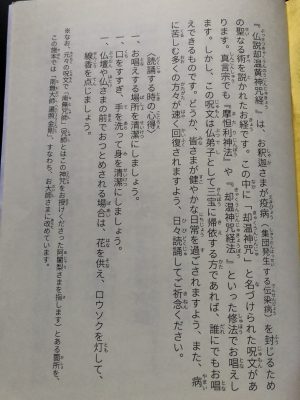 『仏説却温黄神呪経』は、お釈迦さまが疫病（集団発生する伝染病）を封じるため
の聖なる術を説かれたお経です。この中に「却温神呪」と名づけられた呪文があ
ります。真言宗でも『摩怛利神法』や『却温神呪経法』といった修法でお唱えし
ます。しかし、この呪文は仏弟子として三宝に帰依する方であれば、誰にでもお唱
えできるものです。どうか、皆さまが健やかな日常を過ごされますよう、また、病
に苦しむ多くの方々が速く回復されますよう、日々読誦してご祈念ください。
〈読誦する時の心得〉
一、お唱えする場所を清潔にしましょう。
一、口をすすぎ、手を洗って身を清潔にしましょう。
一、仏壇や仏さまの前でおつとめされる場合は、花を供え、ロウソクを灯して、
線香を点じましょう。
※なお、元々の呪文で「南無兄師」（兄師とはこの神咒をお授けくださった阿闍梨さまを指します）とある箇所を、
この経本では「南無大師遍照金剛」、すなわち、お大師さまに改めています。